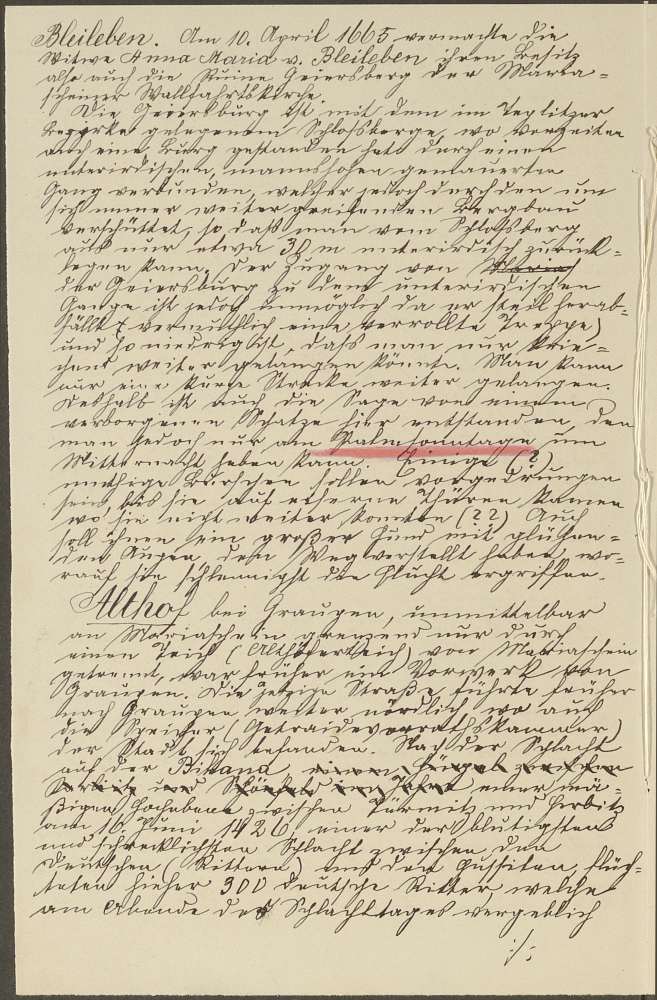 Bleileben. Am 10. April 1665 vermachte die
Witwe Anna Maria v. Bleileben ihren Besitz
also auch die Ruine Geiersberg der Maria-
scheiner Wallfahrtskirche.
Die Geiersburg ist mit dem im Teplitzer
Bezirke gelegenem Schlossberge, wo vorzeiten
auch eine Burg gestanden hat durch einen
unterirdischen, mannshohen gemauerten
Gang verbunden, welcher jedoch durch den um
sich immer weitergreifenden Bergbau
verschüttet, so daß man vom Schloßberg
aus nur etwa 30 m unterirdisch zurück-
legen kann. Der Zugang von
der Geiersburg zu dem unterirdischen
Gange ist jedoch unmöglich da er steil herab-
fällt (vermuthlich eine verrollte Treppe)
und so niedrig ist, dass man nur krie-
chend weiter gelangen könnte. Man kann
nur eine kurze Strecke weiter gelangen.
Deshalb ist auch die Sage von einem
verborgenen Schatze hier entstanden, den
man jedoch nur am Palmsonntage um
Mitternacht heben kann. Einige (?)
muthige Burschen sollen vorgedrungen
sein, bis sie auf eiserne Thüren kamen
wo sie nicht weiter konnten (??) Auch
soll ihnen ein großer Hund mit glühen-
den Augen den Weg verstellt haben, wo-
rauf sie schleunigst die Flucht ergriffen.
Althof bei Graupen, unmittelbar
an Mariaschein grenzend nur durch
einen Teich (Althöferteich) von Mariaschein
getrennt, war früher ein Vorwerk von
Graupen. Die jetzige Straße führte früher
nach Graupen weiter nördlich wo auch
die Speicher (Getraidevorrathskammer)
der Stadt sich befanden. Nach der Schlacht
auf der Bihana
einer mä-
ßigen Hochebene zwischen Türmitz und Herbitz
am 16. Juni 1426, einer der blutigsten
und schrecklichsten Schlacht zwischen den
Deutschen (Rittern) und den Hussiten, flüch-
teten hieher 300 deutsche Ritter, welche
am Abende des Schlachttages vergeblich
./.